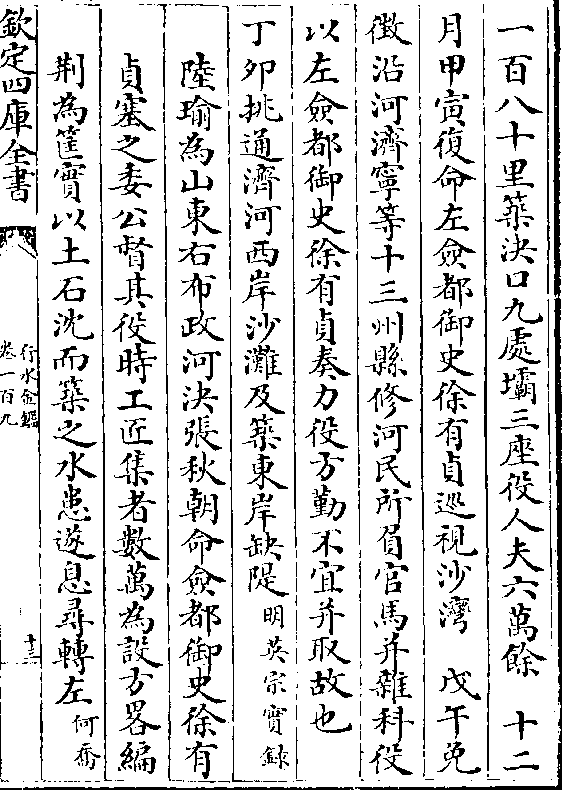 一百八十里築決口九處壩三座役人夫六萬餘　十二
月甲寅復命左僉都御史徐有貞巡視沙灣　戊午免
徵沿河濟寧等十三州縣修河民所負官馬并雜科役
以左僉都御史徐有貞奏力役方勤不宜并取故也
丁卯挑通濟河西岸沙灘及築東岸缺隄明英宗實錄
陸瑜為山東右布政河決張秋朝命僉都御史徐有
貞塞之委公督其役時工匠集者數萬為設方畧編
荆為筐實以土石沈而築之水患遂息尋轉左何喬
欽定四庫全書
行水金鑑
卷一百九
十三